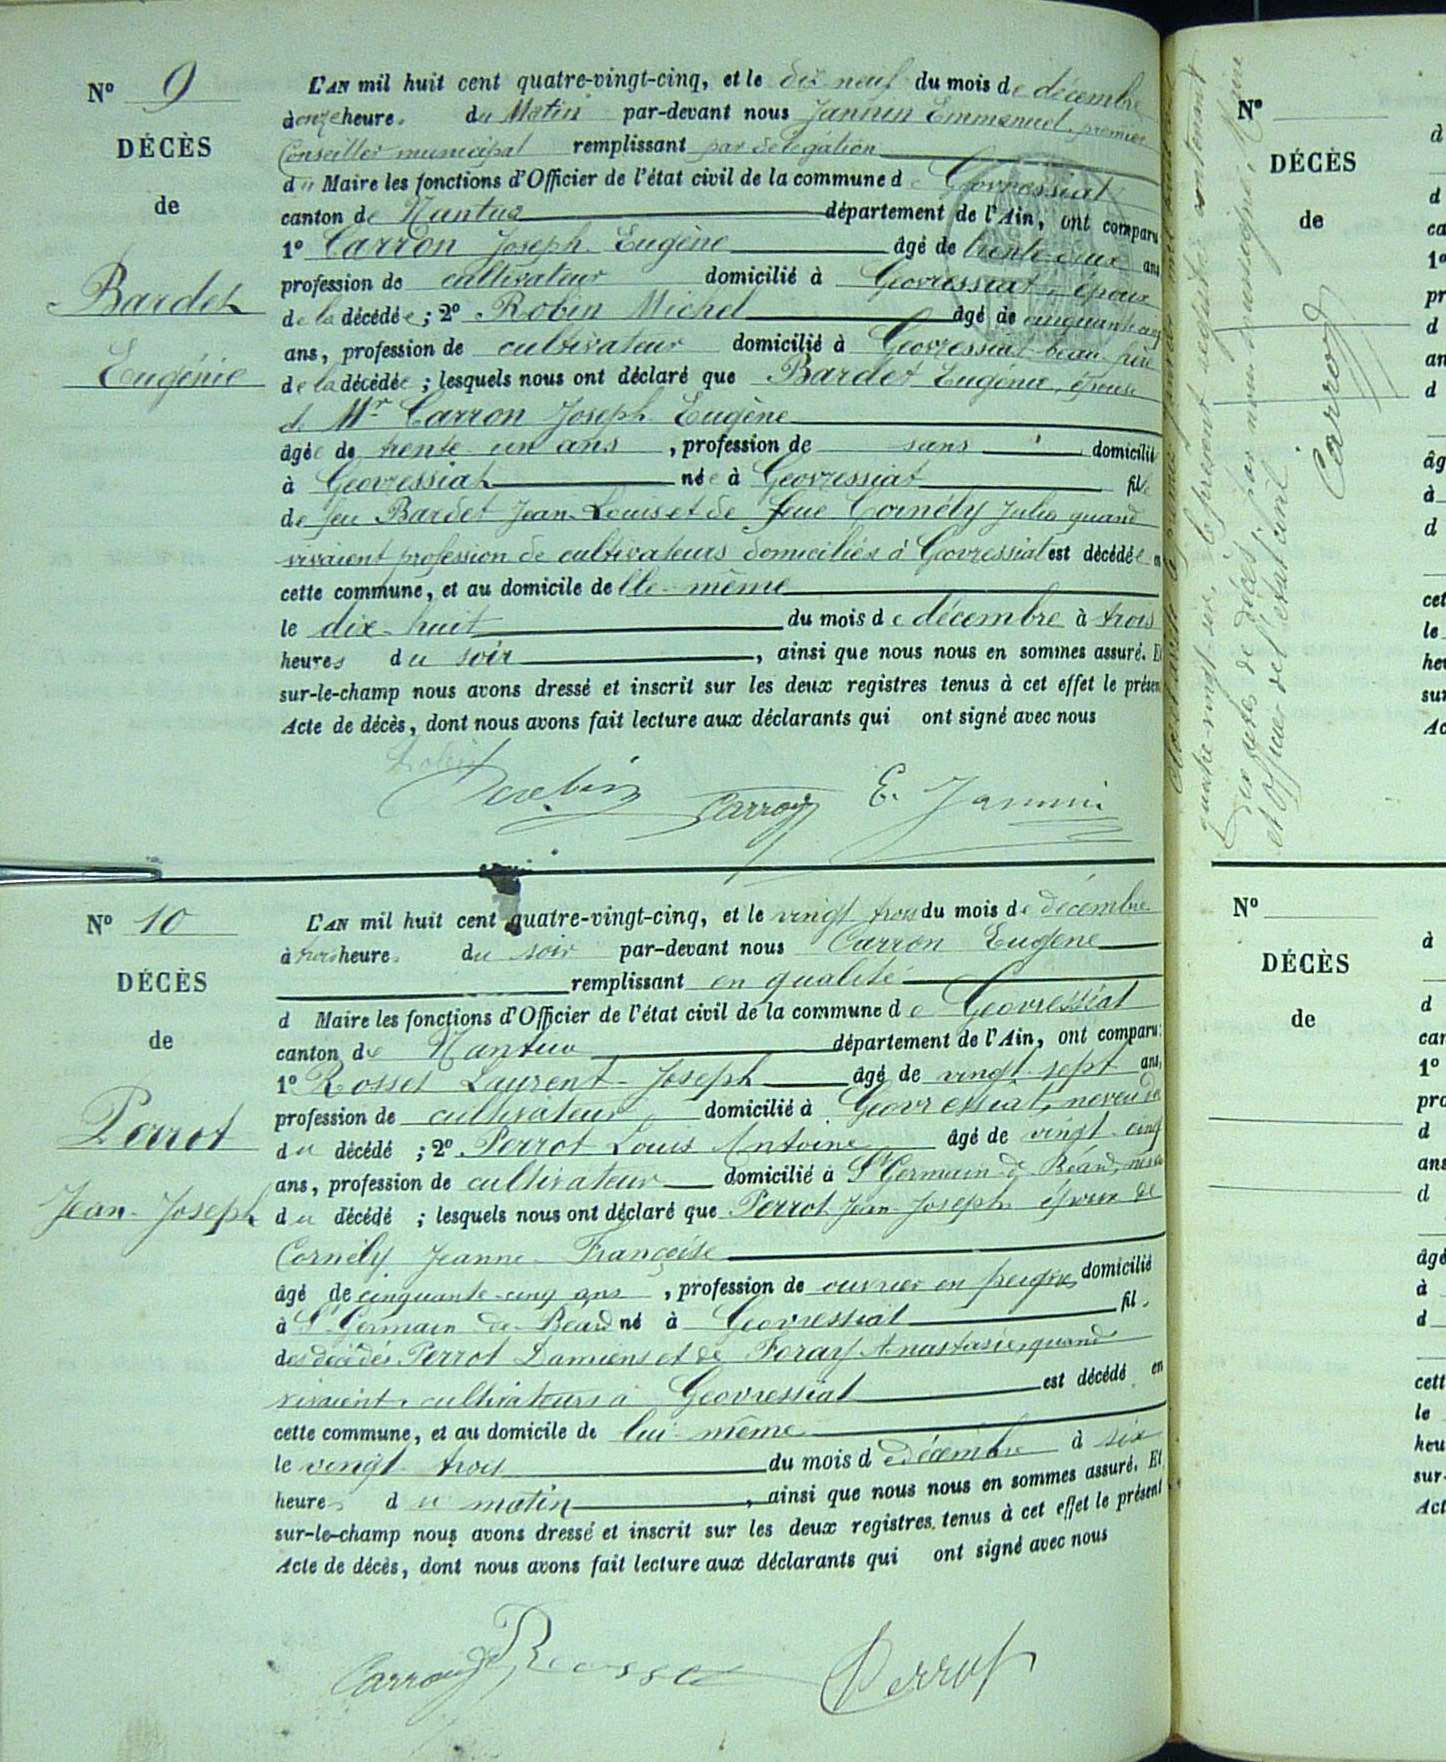 Nº 9
DÉCÈS
de
Bardet
Eugénie
L'AN mil huit cent quatre-vingt-cinq, et le dix neuf du mois de décembre
à onze heures du Matin par-devant nous Jannin Emmanuel, premier
Conseiller municipal remplissant par délégation
du Maire les fonctions d'Officier de l'état civil de la commune de Geovressiat
canton de Nantua département de l'Ain, ont comparu
1º Carron Joseph Eugène âgé de trente deux ans
profession de cultivateur domicilié à Geovressiat, époux
de la décédée; 2º Robin Michel âgé de cinquante cinq
ans, profession de cultivateur domicilié à Geovressiat beau père
de la décédée; lesquels nous ont déclaré que Bardet Eugénie, épouse
de Mr Carron Joseph Eugène
âgée de trente un ans, profession de sans domicilié
à Geovressiat née à Geovressiat fille
de feu Bardet Jean-Louis et de feue Cornély Julie quand
vivaient profession de cultivateurs domiciliés à Geovressiat est décédée en
cette commune, et au domicile de elle-même
le dix-huit du mois de décembre à trois
heures du soir, ainsi que nous nous en sommes assuré. Et
sur-le-champ nous avons dressé et inscrit sur les deux registres tenus à cet effet le présent
Acte de décès, dont nous avons fait lecture aux déclarants qui ont signé avec nous
Robin Carron E. Jannin
Nº 10
DÉCÈS
de
Perrot
Jean-Joseph
L'AN mil huit cent quatre-vingt-cinq, et le vingt trois du mois de décembre
à trois heures du soir par-devant nous Carron Eugène
remplissant en qualité
d Maire les fonctions d'Officier de l'état civil de la commune de Geovressiat
canton de Nantua département de l'Ain, ont comparu:
1º Rosset Laurent-Joseph âgé de vingt-sept ans,
profession de cultivateur domicilié à Geovressiat, neveu
du décédé; 2º Perrot Louis Antoine âgé de vingt-cinq
ans, profession de cultivateur domicilié à St Germain de Béard, neveu
du décédé; lesquels nous ont déclaré que Perrot Jean-Joseph époux de
Cornély Jeanne-Françoise
âgé de cinquante-cinq ans, profession de ouvrier en peignes domicilié
à St Germain de Béard né à Geovressiat fils
des décédés Perrot Damiens et de Foray Anastasie, quand
vivaient, cultivateurs à Geovressiat est décédé en
cette commune, et au domicile de lui-même
le vingt-trois du mois de décembre à six
heures du matin, ainsi que nous nous en sommes assuré. Et
sur-le-champ nous avons dressé et inscrit sur les deux registres tenus à cet effet le présent
Acte de décès, dont nous avons fait lecture aux déclarants qui ont signé avec nous
Carron Rosset Perrot
quatre-vingt six, le présent registre contenant
dix actes de décès, par nous soussigné, Maire
et officier de l'état civil
Carron
Nº
DÉCÈS
de
Nº
DÉCÈS
de